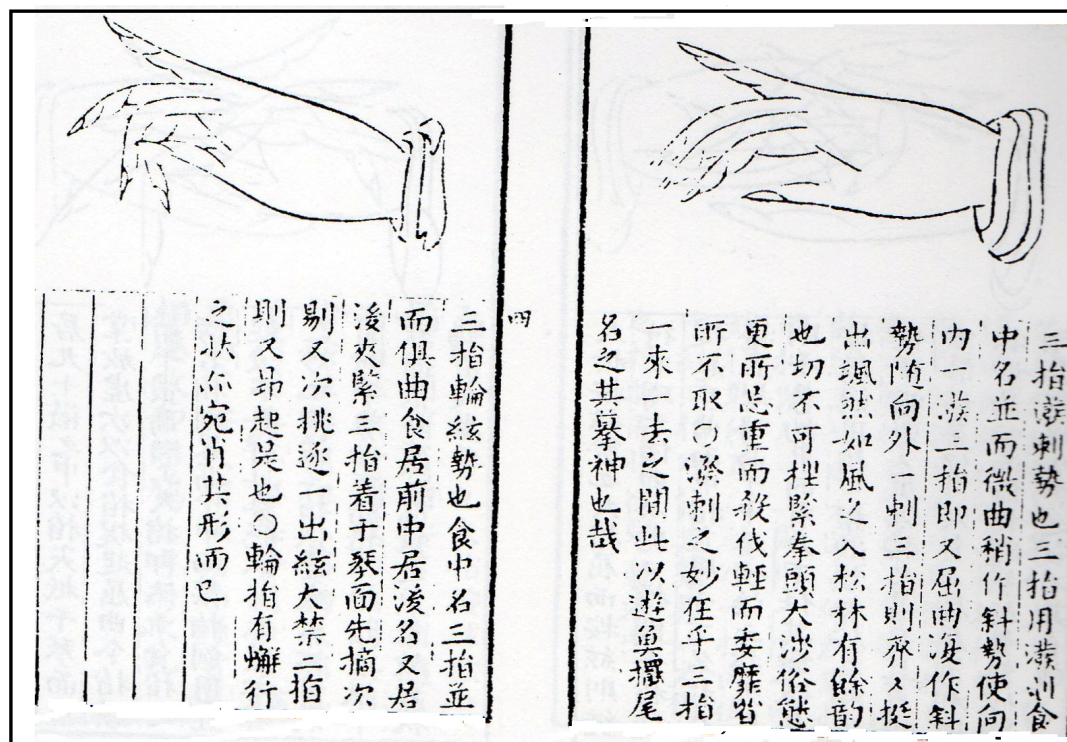 三指潑刺勢也三指用潑刺食
中名並而微曲稍作斜勢使向
内一潑三指即又屈曲复作斜
勢随向外一刺三指則齐又挺
出颯、然如風之入松林有餘韵
也切不可拄緊拳頭大涉俗態
更所忌重而殺伐輕而委靡皆
所不取〇潑刺之妙在乎三指
一來一去之間此以遊魚擺尾
名之其摹神也哉
四
三指輪絃勢也食中名三指並
而俱曲食居前中居後名又居
後夾緊三指着于琴面先摘次
剔又次挑逐一出絃大禁三指
則又昂起是也〇輪指有蠏行
之状亦宛肖其形而已